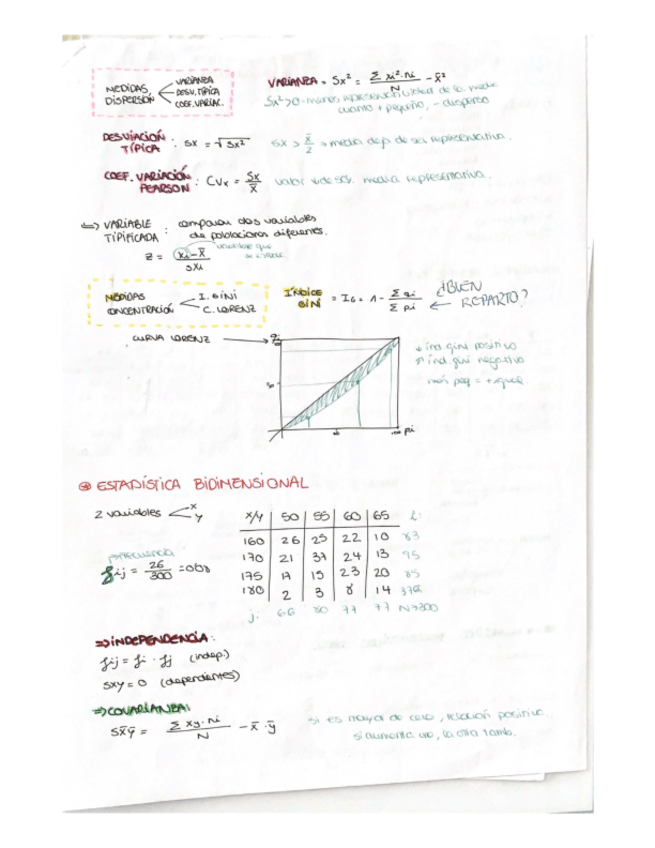 MEDIDAS DISPERSIÓN
VARIANZA
DESV. TÍPICA
COEF. VARIAC.
VARIANZA = Sx² = Σ xi²·ni / N - x̄²
Sx² > 0 - menos representatividad de la media
cuanto + pequeño, - disperso
DESVIACIÓN TÍPICA : Sx = √Sx²
Sx > x̄/2 → media deja de ser representativa.
COEF. VARIACIÓN PEARSON : CVx = Sx/x̄
media representativa.
⇒ VARIABLE TIPIFICADA : comparar dos variables
de poblaciones diferentes.
Z = xi - x̄ / Sxi
variable que
MEDIDAS CONCENTRACIÓN
I. GINI
C. LORENZ
ÍNDICE GINI = IG = 1 - Σ qi / Σ pi
¿BUEN REPARTO?
CURVA LORENZ
qi
50
50 100 pi
ind gini positivo
ind gini negativo
más peq = + igual
ESTADÍSTICA BIDIMENSIONAL
2 variables x y
x/y 50 55 60 65 i:
160 26 25 22 10 83
170 21 37 24 13 95
175 17 15 23 20 85
180 2 3 8 14 37
j: 66 80 77 77 N→300
frecuencia
fij = 26/300 = 0'08
⇒ INDEPENDENCIA:
fij = fi · fj (indep.)
Sxy = 0 (dependientes)
⇒ COVARIANZA:
Sx̄ȳ = Σ xy·ni / N - x̄·ȳ
si es mayor de cero, relación positiva.
si aumenta uno, la otra tamb.